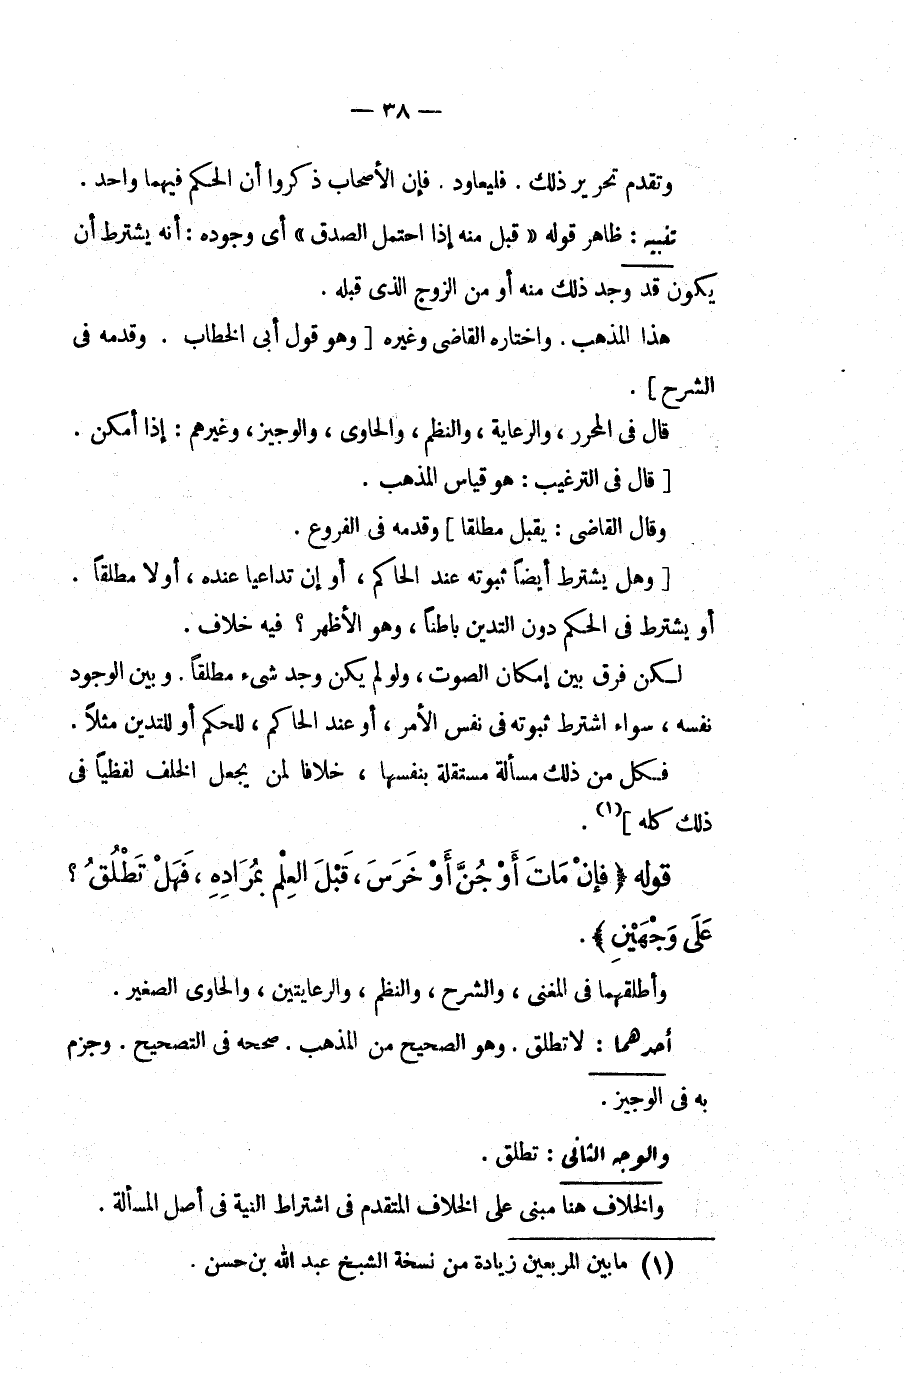 — ٣٨ —
وتقدم تحرير ذلك . فليعاود . فإن الأصحاب ذكروا أن الحكم فيهما واحد .
تنبيه : ظاهر قوله « قبل منه إذا احتمل الصدق » أى وجوده : أنه يشترط أن
يكون قد وجد ذلك منه أو من الزوج الذى قبله .
هذا المذهب . واختاره القاضى وغيره [ وهو قول أبى الخطاب . وقدمه فى
الشرح ] .
قال فى المحرر ، والرعاية ، والنظم ، والحاوى ، والوجيز ، وغيرهم : إذا أمكن .
[ قال فى الترغيب : هو قياس المذهب .
وقال القاضى : يقبل مطلقا ] وقدمه فى الفروع .
[ وهل يشترط أيضاً ثبوته عند الحاكم ، أو إن تداعيا عنده ، أولا مطلقاً .
أو يشترط فى الحكم دون التدين باطناً ، وهو الأظهر ؟ فيه خلاف .
لكن فرق بين إمكان الصوت ، ولو لم يكن وجد شىء مطلقاً . وبين الوجود
نفسه ، سواء اشترط ثبوته فى نفس الأمر ، أو عند الحاكم ، للحكم أو للتدين مثلاً .
فكل من ذلك مسألة مستقلة بنفسها ، خلافا لمن يجعل الخلف لفظياً فى
ذلك كله ](١) .
قوله ﴿ فإنْ مَاتَ أَوْ جُنَّ أَوْ خَرَسَ ، قَبْلَ العِلْمِ بِمُرَادِهِ ، فَهَلْ تَطْلُقُ ؟
عَلَى وَجْهَيْنِ ﴾ .
وأطلقهما فى المغنى ، والشرح ، والنظم ، والرعايتين ، والحاوى الصغير .
أحدهما : لا تطلق . وهو الصحيح من المذهب . صححه فى التصحيح . وجزم
به فى الوجيز .
والوجه الثانى : تطلق .
والخلاف هنا مبنى على الخلاف المتقدم فى اشتراط النية فى أصل المسألة .
(١) مابين المربعين زيادة من نسخة الشيخ عبد الله بن حسن .